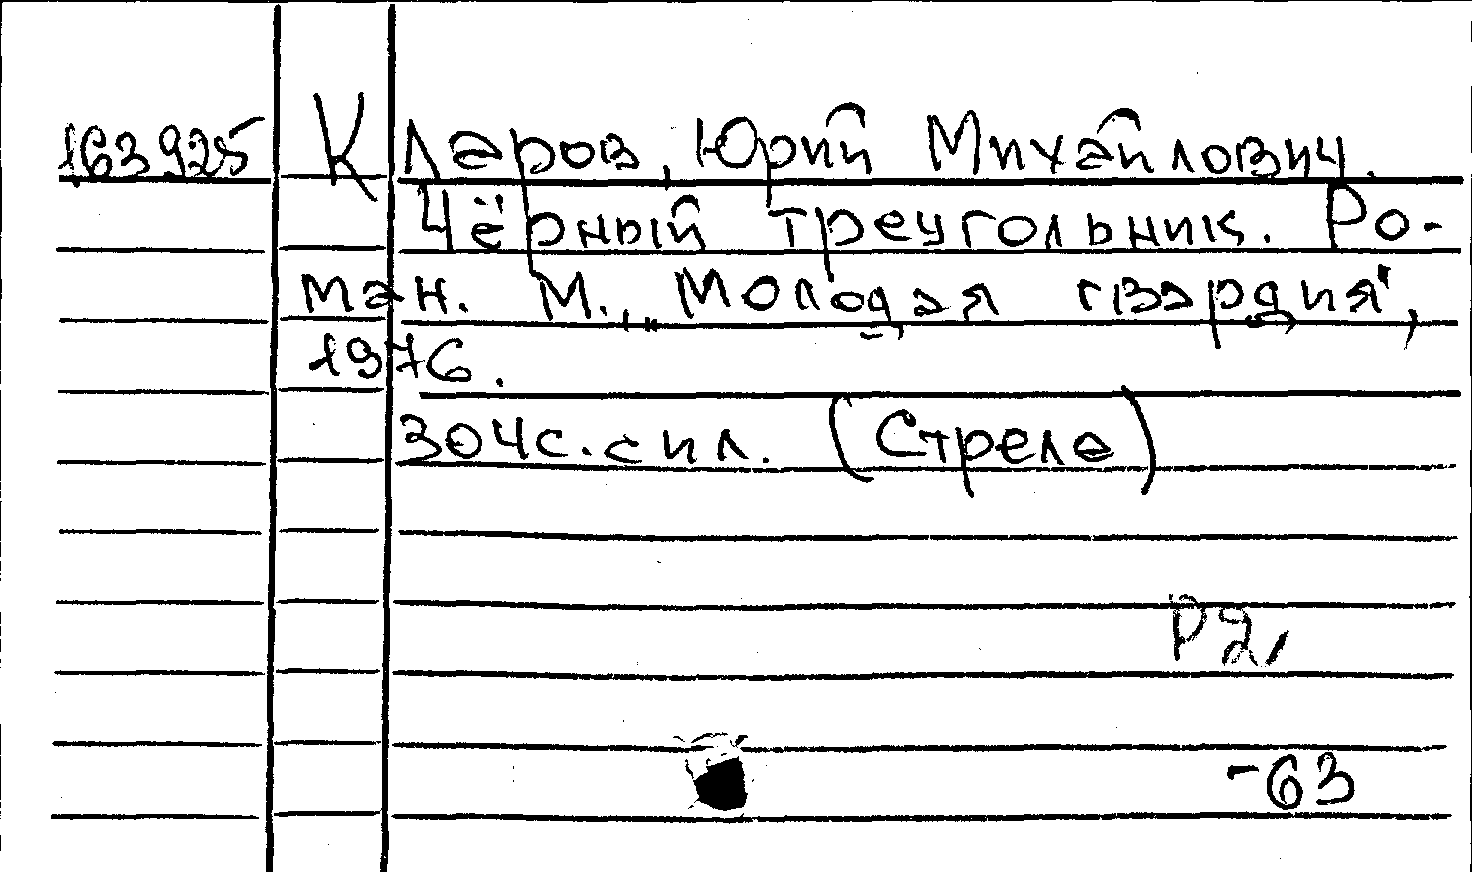 163925 Кларов, Юрий Михайлович.
Чёрный треугольник. Ро-
ман. М., „Молодая гвардия",
1976.
304с. с ил. (Стрела)
Р2,
-63